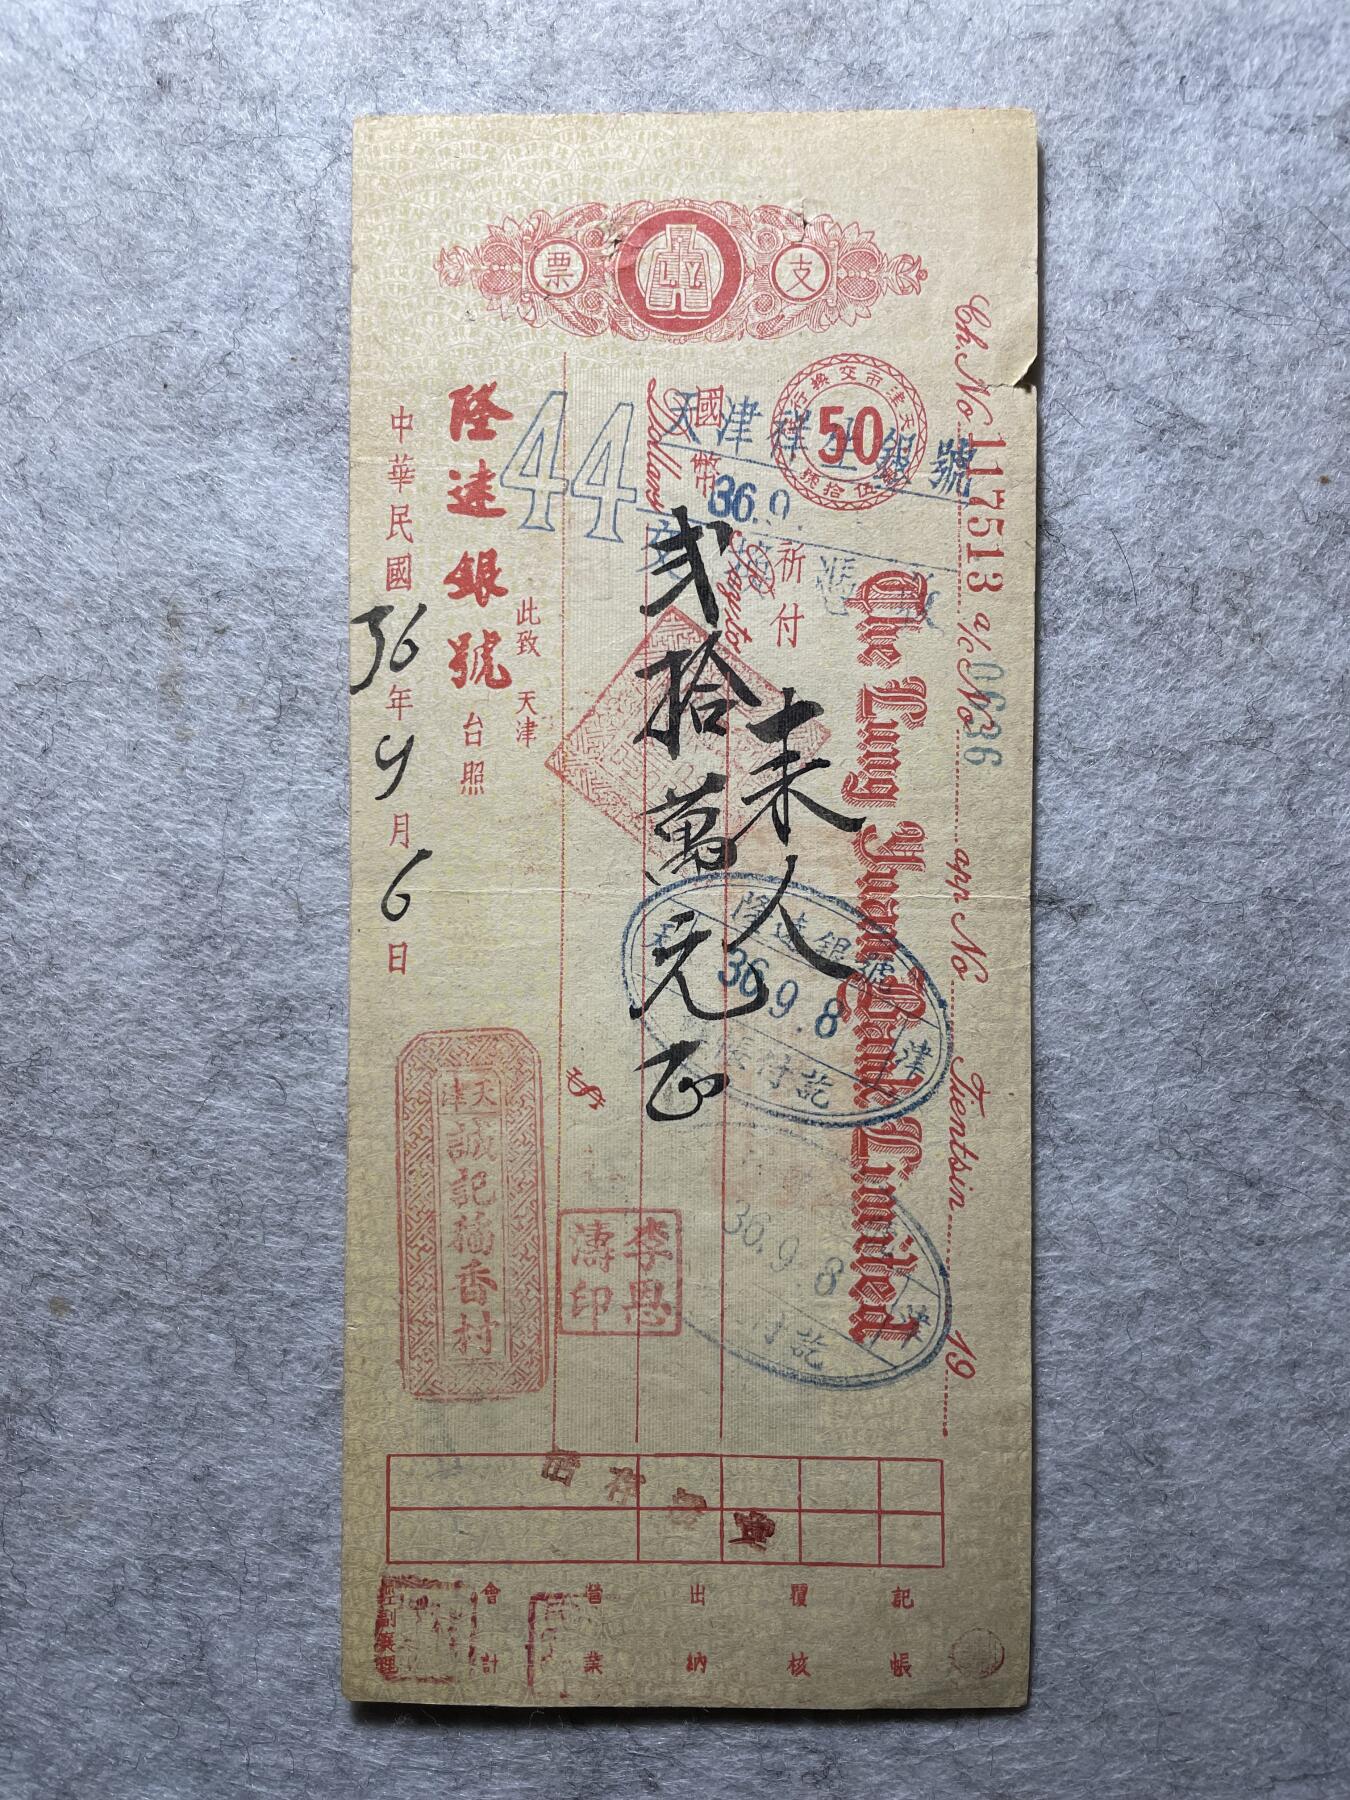 支 票
L Y
Ch. No 117513 a/c No 0636 app No Tientsin 19
The Lung Yuan Bank Limited
天津市交換行
50
號拾伍
祈付 來人
Pay to
國幣 貳拾萬元正
Dollars
$
此致 天津
隆遠銀號 台照
中華民國 36 年 9 月 6 日
天津祥生銀號
36.9.
44
隆遠銀號
36.9.8
天 津
付訖
36.9.8
津
付訖
天津
誠記稻香村
李恩
濤印
記帳
覆核
出納
營業
會計
經副襄理